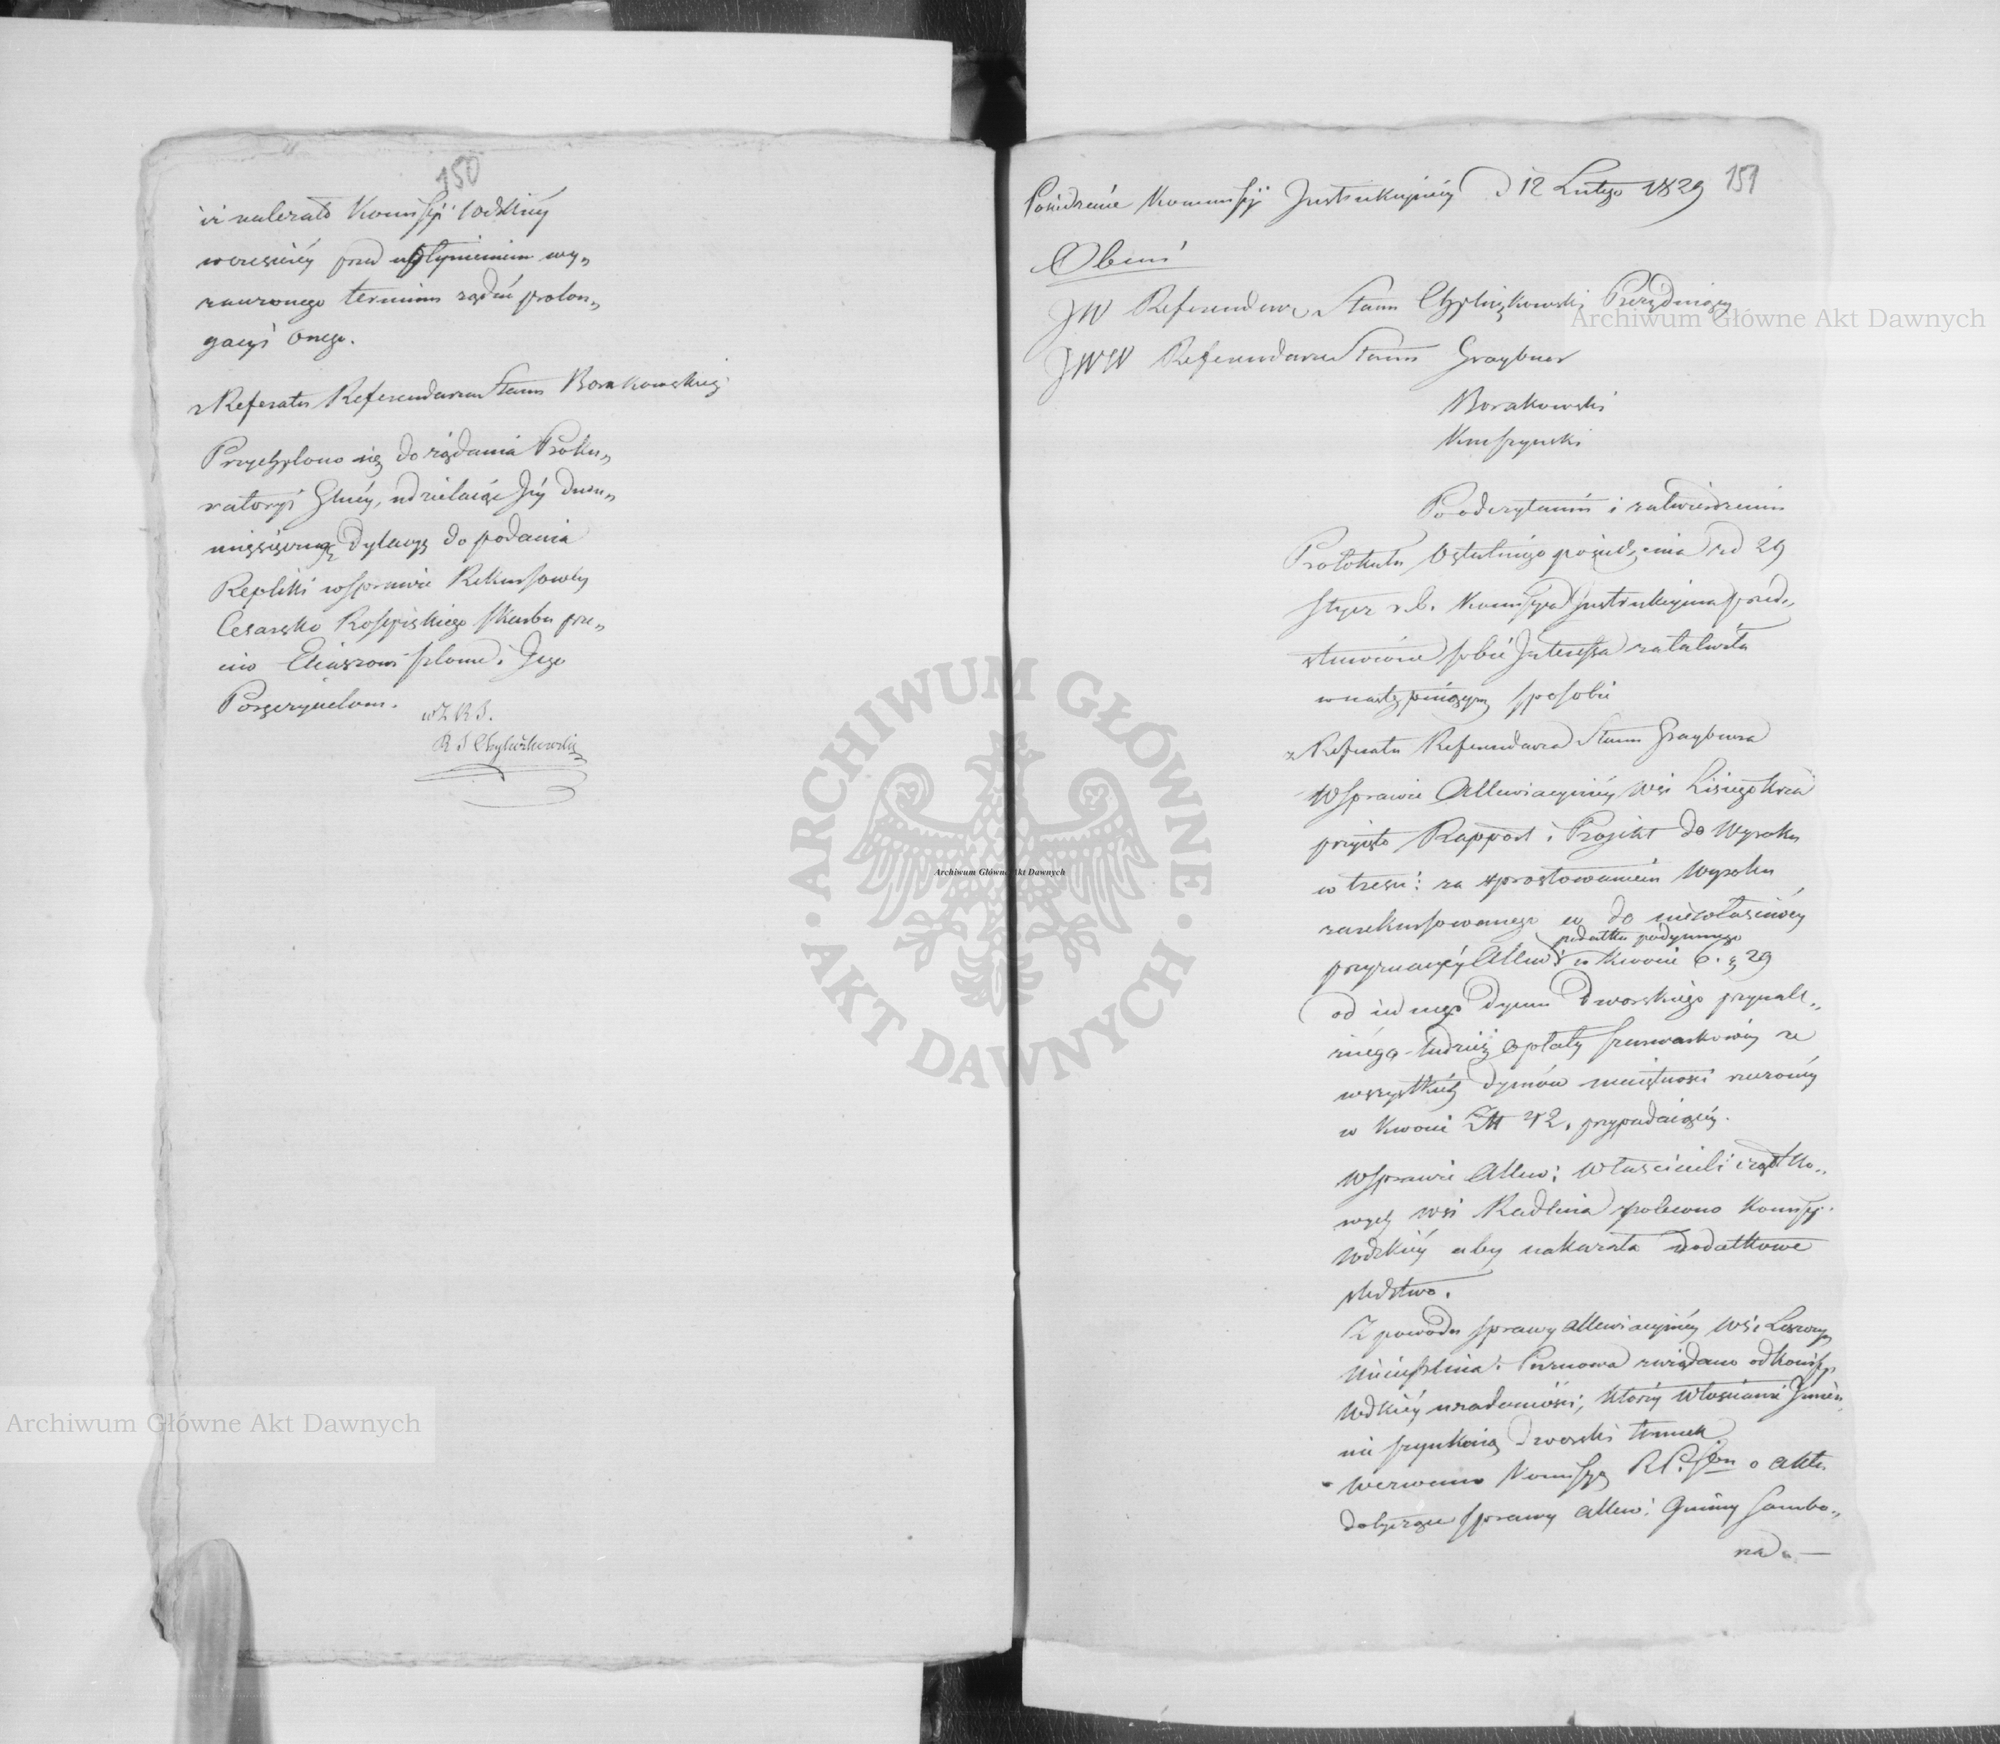 150
iż należało Kommissyi Wdzkiéy
wcześniéy przed upłynieniem wy„
znaczonego terminu żądać prolon„
gacyi onego.
z Referatu Referendarza Stanu Borakowskiego
Przychylono się do żądania Proku„
ratoryi Glnéy, udzielaiąc Jéy dwu„
miesięczną Dylacyę do podania
Repliki w sprawie Rekursowéy
Cesarsko Rossyiskiego skarbu prze„
ciw Eliaszowi i Jego
Poręczycielom.
w Z R S.
R S Chyliczkowski
151
Posiedzenie Kommissyi Instrukcyinéy d 12 Lutego 1829
Obecni
JW Referendarz Stanu Chyliczkowski Prezyduiący
JWW Referendarze Stanu Graybner
Borakowski
Kruszyński
Po odczytaniu i zatwierdzeniu
Protokułu Ostatniego posiedzenia z d 29
Stycz r. b. Kommissya Instrukcyina przed„
stawione sobie Interessa załatwiła
w następuiącym sposobie
z Referatu Referendarza Stanu Graybnera
W sprawie Allewiacyinéy Wsi
przyięto Rapport i Projekt do Wyroku
w treści: za sprostowaniem Wyroku
zarekursowanego co do niewłaściwéy
podatku podymnego
przyznanéy Allew: w kwocie 6. g 29
od iednego dymu Dworskiego przynale„
żnego tudzież opłaty szarwarkowéy ze
wszystkich dymów maiętności rzeczonéy
w kwocie Zł 42, przypadaiącéy.
W sprawie Allew: Właścicieli cząstko„
wych wsi Radlina polecono Kommissyi
Wdzkiéy aby nakazała dodatkowe
śledztwo.
Z powodu sprawy allewiacyinéy Wsi
zażądano od Kommissyi
Wdzkiéy wiadomości, którzy Włościanie
nie szynkuią dworski trunek
Wezwano Kommissyą R. P. i Sbu o akta
dotyczące sprawy allew: Gminy Sambo„
rza